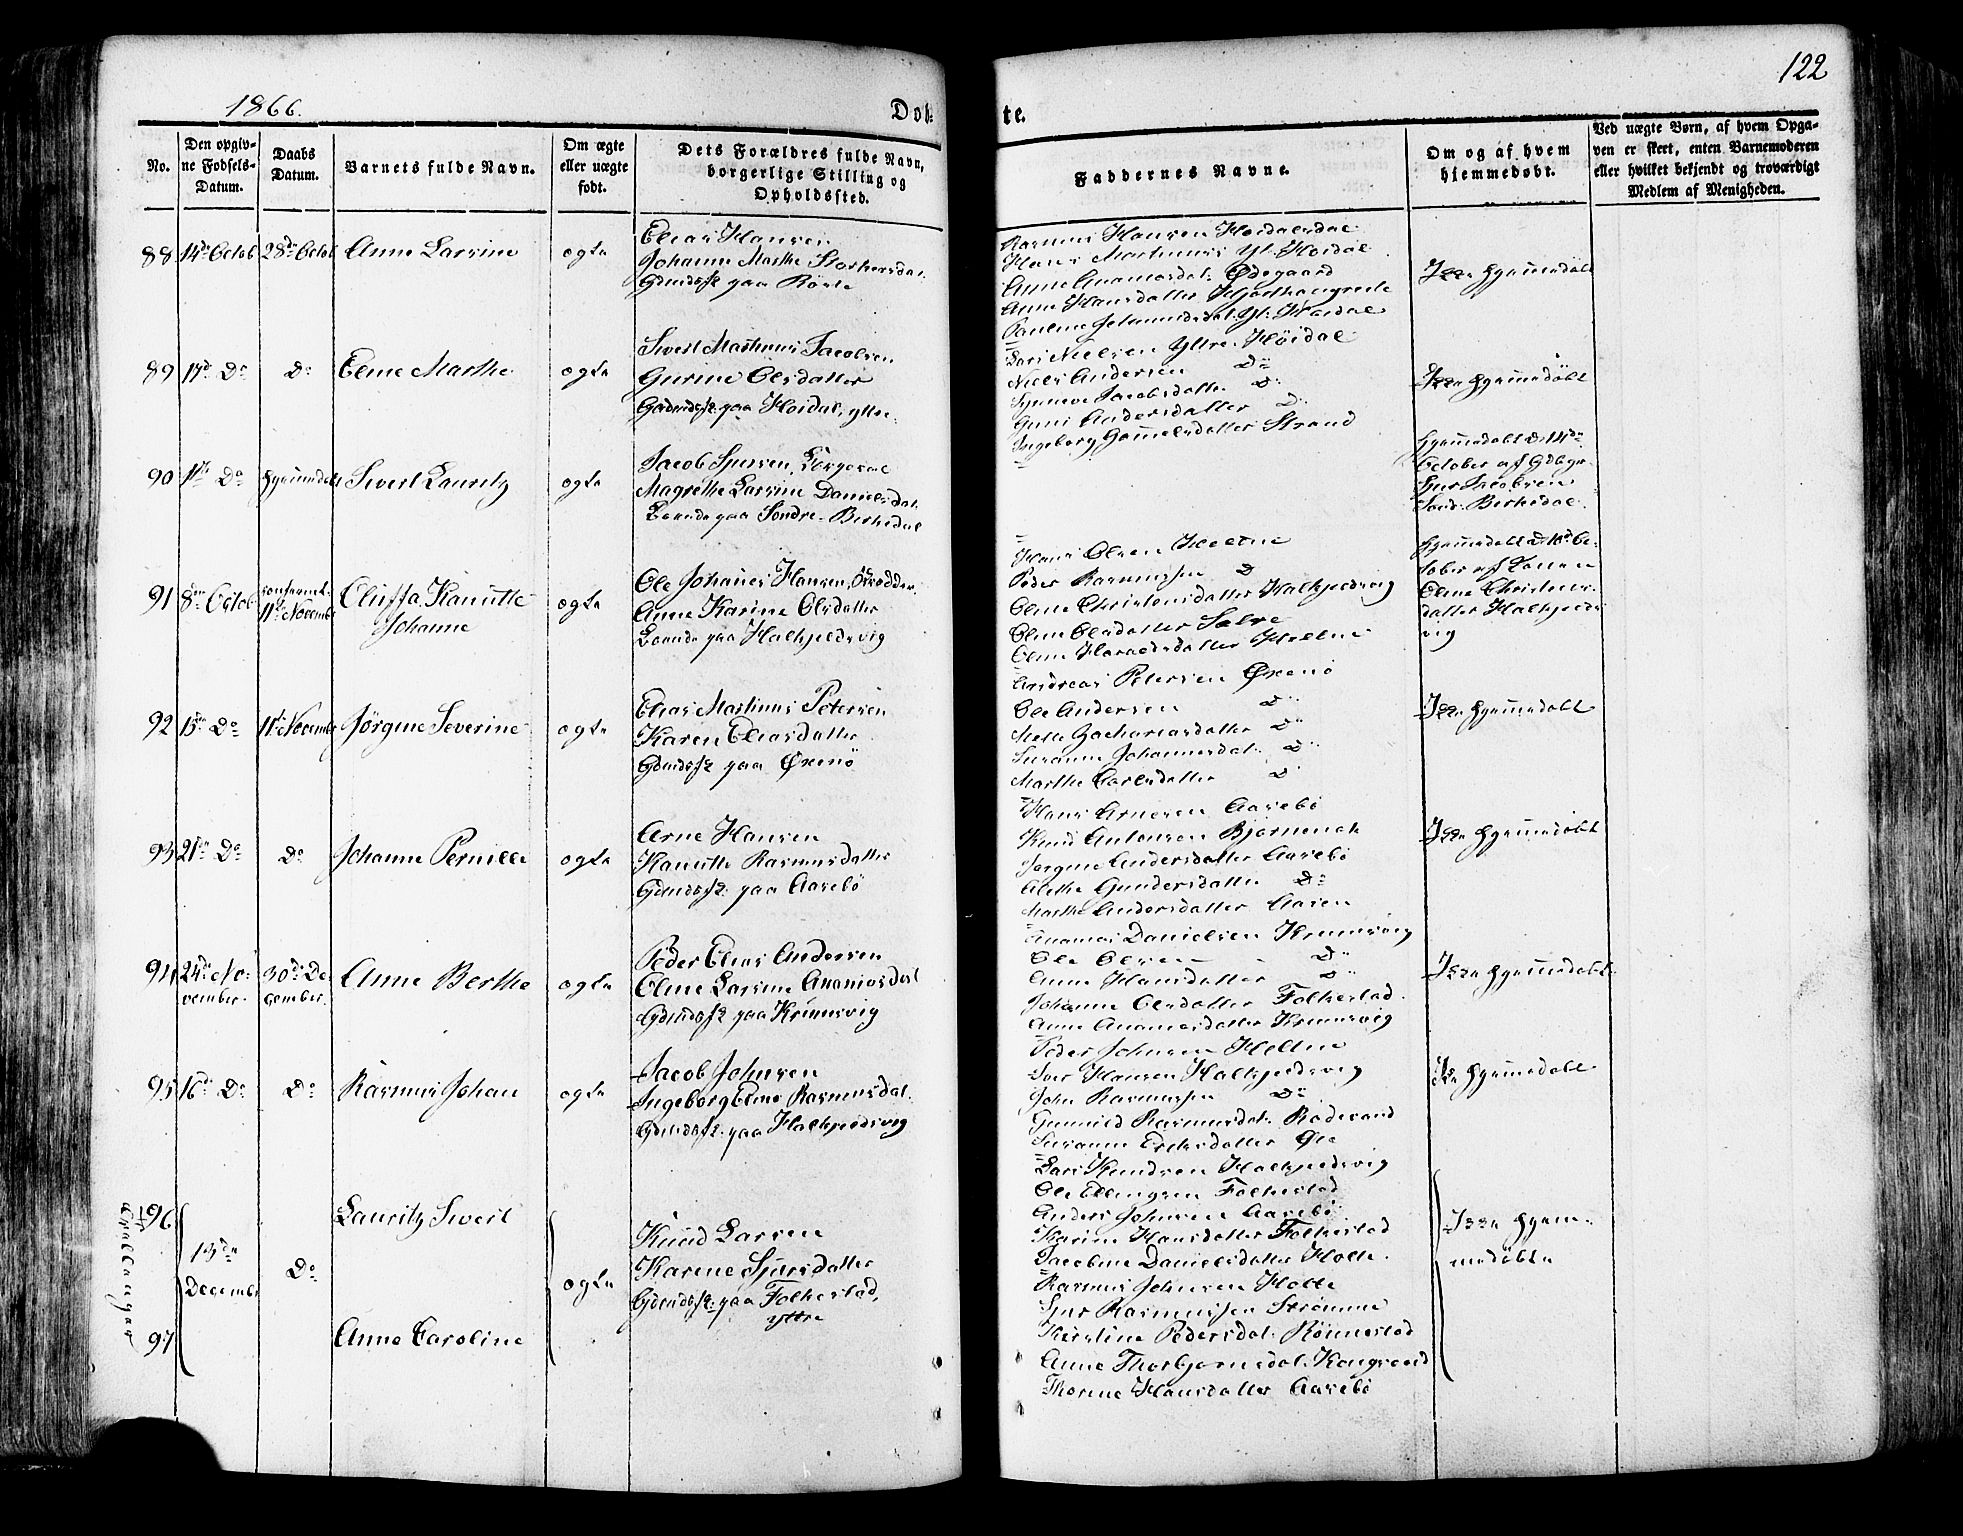 1866.
Døb=
te.
122
No.
Den opgiv=
ne Fødsels=
Datum.
Daabs
Datum.
Barnets fulde Navn.
Om ægte
eller uægte
født.
Dets Forældres fulde Navn,
borgerlige Stilling og
Opholdssted.
Faddernes Navne.
Om og af hvem
hjemmedøbt.
Ved uægte Børn, af hvem Opga=
ven er skeet, enten Barnemoderen
eller hvilket bekjendt og troværdigt
Medlem af Menigheden.
88 14de Octob 28de Octob Anne Larsine ægte
Elias Hansen
Johanne Marthe
Gdmdsf. paa
Rasmus Hansen Hoidalsdal
Hans Martinus Yt. Hoidal
Anne Ananiasdat. Ødegaard
Anne Hansdatter
Pauline Johannesdat. Yt. Hoidal
Ikke hjemmedøbt
89 17de Do Do Eline Marthe ægte
Sivert Martinus Jacobsen
Gurine Olsdatter
Gdmdsf. paa Hoidal, ytre.
Lars Nielsen Ytre Høidal
Niels Andersen Do
Synneve Jacobsdatter Do
Guri Andersdatter Do
Ingeborg Gammelsdatter Strand
Ikke hjemmedøbt
90 11te Do hjemmedøbt Sivert Lauritz ægte
Jacob Sjursen
Magrethe Larsine Danielsdat.
Boende paa Søndre Birkedal
hjemmedøbt d 14de
October af Gdbgr.
Sjur Jacobsen
Sønd. Birkedal.
91 8de Octob confirmt. 11te Novemb Oluffa Hanutte
Johanne
ægte
Ole Johannes Hansen,
Anne Karine Olsdatter
Boende paa Halkjedsvig
Hans Olsen Heltne
Peder Rasmussen Do
Oline Christensdatter Halkjedsvig
Oline Olsdatter Sætre
Oline Haraldsdatter Heltne
hjemmedøbt d 10de Oc=
tober af Konen
Oline Christens=
datter Halkjeds
vig
92 15de Do 11te Novemb Jørgine Severine ægte
Elias Martinus Petersen
Karen Eliasdatter
Gdmdsf. paa Øxenø
Andreas Petersen Øxenø
Ole Andersen Do
Mette Zachariasdatter Do
Susanne Johannesdat. Do
Marthe Carlsdatter Do
Ikke hjemmedøbt
93 21de Do Do Johanne Pernille ægte
Arne Hansen
Hanutte Rasmusdatter
Gdmdsf. paa Aasebø
Hans Arnesen Aasebø
Knud Antonsen Bjørnenak
Jørgine Andersdatter Aasebø
Alethe Gundersdatter Do
Marthe Andersdatter Aasen
Ikke hjemmedøbt
94 24de No=
vember.
30de De
cember.
Anne Berthe ægte
Peder Elias Andersen
Oline Larsine Ananiasdat
Gdmdsf. paa Krumsvig
Ananias Danielsen Krumsvig
Ole Olsen Do
Anne Hansdatter Do
Johanne Olsdatter Folkestad
Anne Ananiasdatter Krumsvig
Ikke hjemmedøbt
95 16de Do Do Rasmus Johan ægte
Jacob Johnsen
Ingeborg Eline Rasmusdat.
Gdmdsf. paa Halkjedsvig
Peder Johnsen Heltne
Lars Hansen Halkjedsvig
John Rasmussen Do
Gunnild Rasmusdat. Rødesand
Susanne Eriksdatter
Ikke hjemmedøbt
Tvillinger
96 Lauritz Sivert
13de
December
Do
ægte
Knud Larsen
Karine Sjursdatter
Gdmdsf. paa Folkestad,
ytre
97 Anne Caroline
Lars Knudsen Halkjedsvig
Ole Ellingsen Folkestad
Anders Johnsen Aasebø
Karine Hansdatter Folkestad
Jacobine Danielsdatter Holte
Rasmus Johnsen Holte
Sjur Rasmussen Strømme
Kirstine Pedersdat. Rønnestad
Anne Thorbjørnsdat. Kongsvold
Thorine Hansdatter Aasebø
Ikke hjem=
medøbte